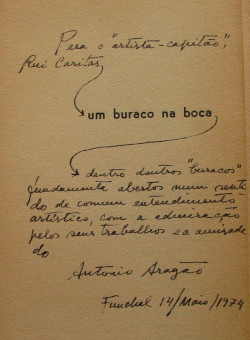 Para o "artista-capitão",
Rui Caritas,
um buraco na boca
dentro doutros "buracos"
fundamente abertos num senti
do de comum entendimento
artístico, com a admiração
pelos seus trabalhos e a amizade
do
António Aragão
Funchal 14/Maio/1974